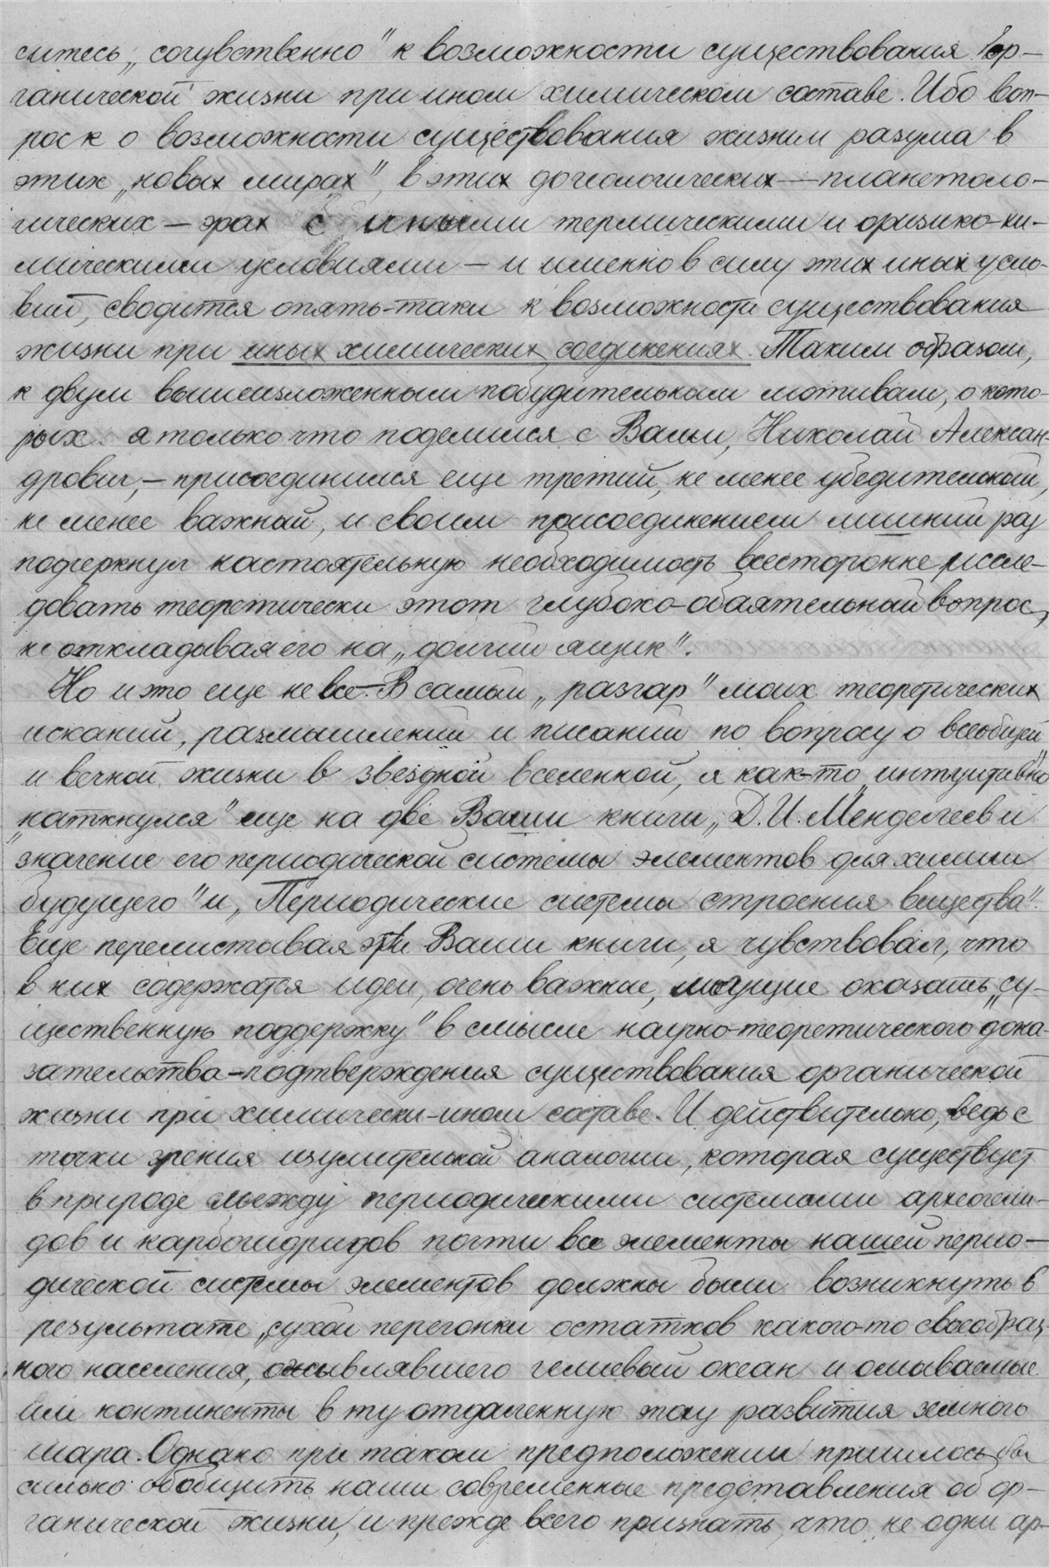 ситесь „сочувственно" к возможности существования „ор-
ганической" жизни при ином химическом составе. Ибо воп-
рос к о возможности существования жизни и разума в
этих „новых мирах", в этих догеологических — планетоло-
гических — эрах с иными термическими и физико-хи-
мическими условиями — и именно в силу этих иных усло-
вий, сводится опять-таки к возможности существования
жизни при иных химических соединениях. Таким образом,
к двум вышеизложенным побудительным мотивам, о кото-
рых я только что поделился с Вами, Николай Алексан-
дрович, — присоединился еще третий, не менее убедительный,
не менее важный, и своим присоединением лишний раз
подчеркнул настоятельную необходимость всесторонне иссле-
довать теоретически этот глубоко-обаятельный вопрос,
не откладывая его на „долгий ящик".
Но и это еще не все. В самый „разгар" моих теоретических
исканий, размышлений и писаний по вопросу о всеобщей
и вечной жизни в звездной вселенной, я как-то „интуитивно"
„наткнулся" еще на две Ваши книги „Д. И. Менделеев и
значение его периодической системы элементов для химии
будущего" и „Периодические системы строения вещества".
Еще перелистывая эти Ваши книги, я чувствовал, что
в них содержатся идеи, очень важные, могущие оказать „су-
щественную поддержку" в смысле научно-теоретического дока-
зательства-подтверждения существования органической
жизни при химически-ином составе. И действительно, ведь с
точки зрения изумительной аналогии, которая существует
в природе между периодическими системами археогели-
дов и карбогидридов почти все элементы нашей перио-
дической системы элементов должны были возникнуть в
результате „сухой перегонки остатков какого-то своеобраз-
ного населения, оживлявшего гелиевый океан и омываемые
им континенты в ту отдаленную эпоху развития земного
шара. Однако при таком предположении пришлось бы
сильно обобщить наши современные представления об ор-
ганической жизни, и прежде всего признать, что не одни ар-